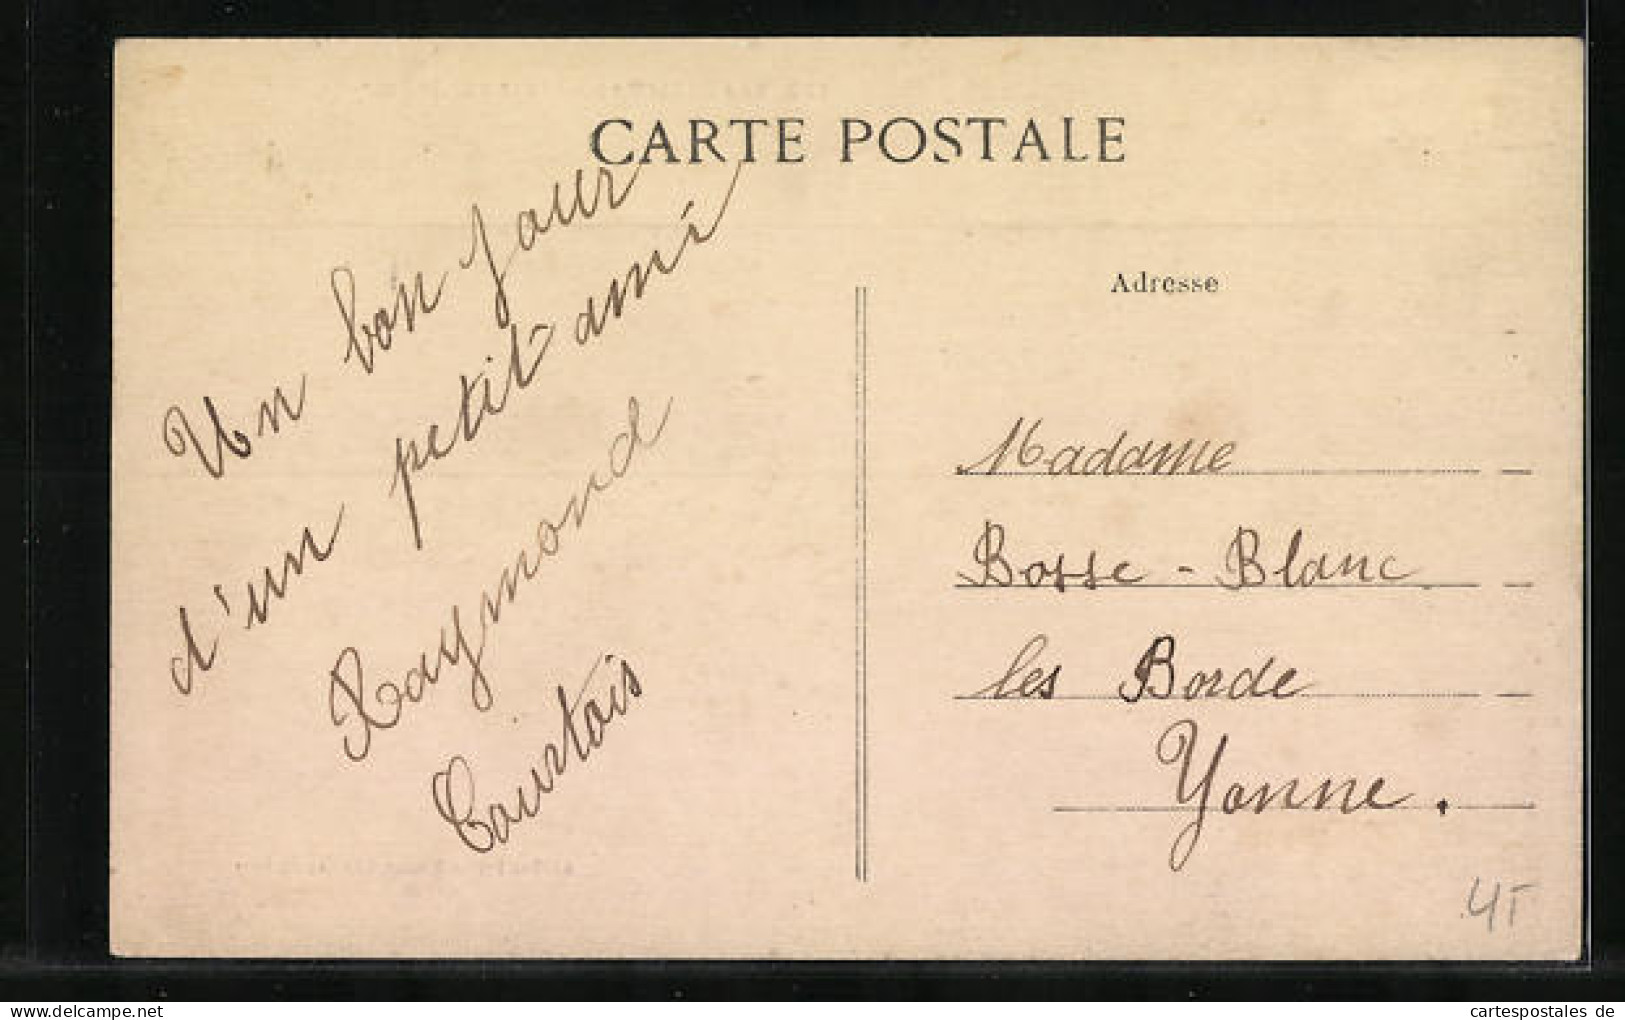 CARTE POSTALE
Un bon jour
d'un petit ami
Raymond
Courtois
Adresse
Madame
Bosse - Blanc
les Borde
Yonne.
cartespostales de